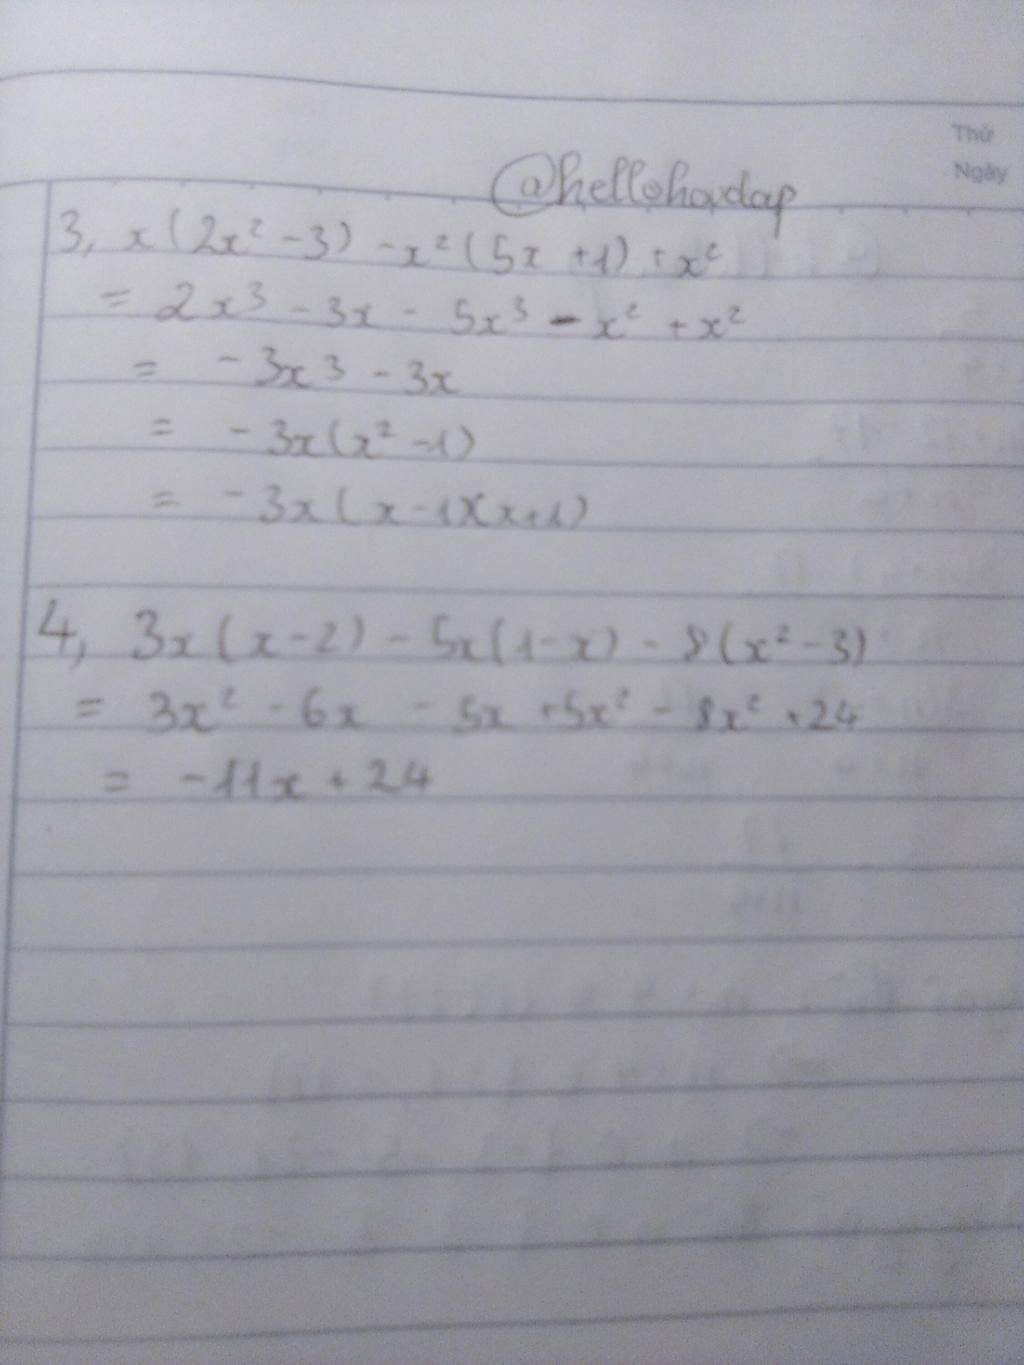 Thứ
Ngày
@hellohadap
3, x(2x² - 3) - x²(5x + 1) + x²
= 2x³ - 3x - 5x³ - x² + x²
= - 3x³ - 3x
= - 3x(x² - 1)
= - 3x(x - 1)(x + 1)
4, 3x(x - 2) - 5x(1 - x) - 8(x² - 3)
= 3x² - 6x - 5x + 5x² - 8x² + 24
= - 11x + 24